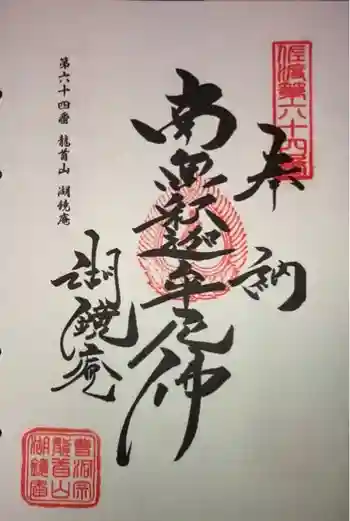 佐渡第六十四番
奉納
南無釈迦牟尼佛
湖鏡庵
第六十四番 龍首山 湖鏡庵
曹洞宗
龍首山
湖鏡庵